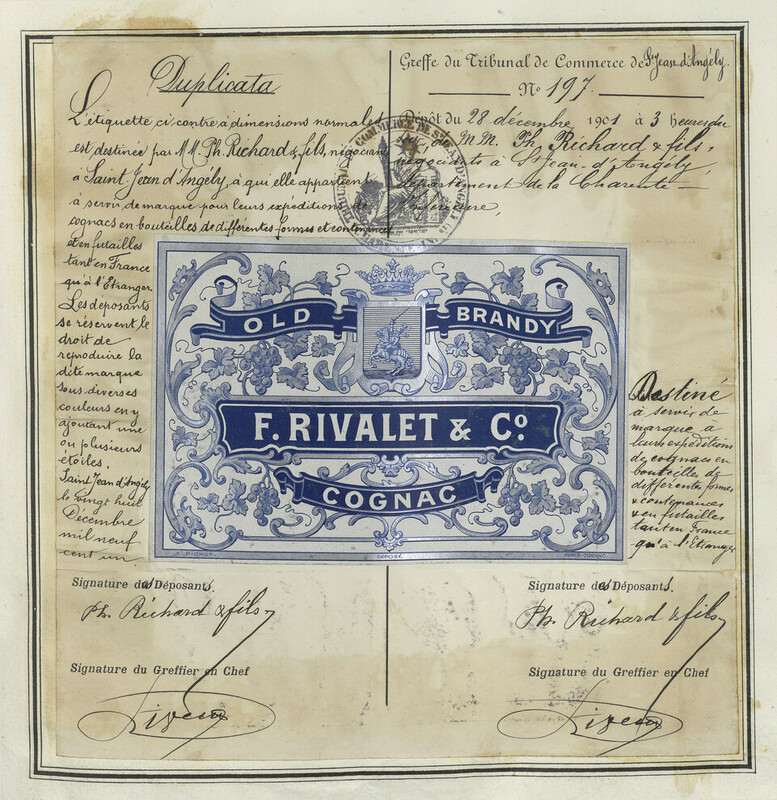 Duplicata
L'étiquette ci contre à dimensions normales
est destinée par M.M. Ph. Richard & fils, négociants
à Saint Jean d'Angély, à qui elle appartient
à servir de marque pour leurs expéditions de
cognacs en bouteilles de différentes formes et contenances
et en futailles
tant en France
qu'à l'Etranger.
Les déposants
se réservent le
droit de
reproduire la
dite marque
sous diverses
couleurs en y
ajoutant une
ou plusieurs
étoiles.
Saint Jean d'Angély
le vingt huit
Décembre
mil neuf
cent un
Greffe du Tribunal de Commerce de St Jean d'Angély.
No 197.
Dépôt du 28 décembre 1901 à 3 heures du
M.M. Ph. Richard & fils,
négociants à St Jean-d'Angély,
département de la Charente-
Inférieure,
OLD BRANDY
F. RIVALET & Co.
COGNAC
DÉPOSÉ
Destiné
à servir de
marque à
leurs expéditions
de cognacs en
bouteilles de
différentes formes
& contenances
& en futailles
tant en France
qu'à l'Etranger
Signature des Déposants.
Ph. Richard & fils
Signature du Greffier en Chef
Signature des Déposants.
Ph. Richard & fils
Signature du Greffier en Chef